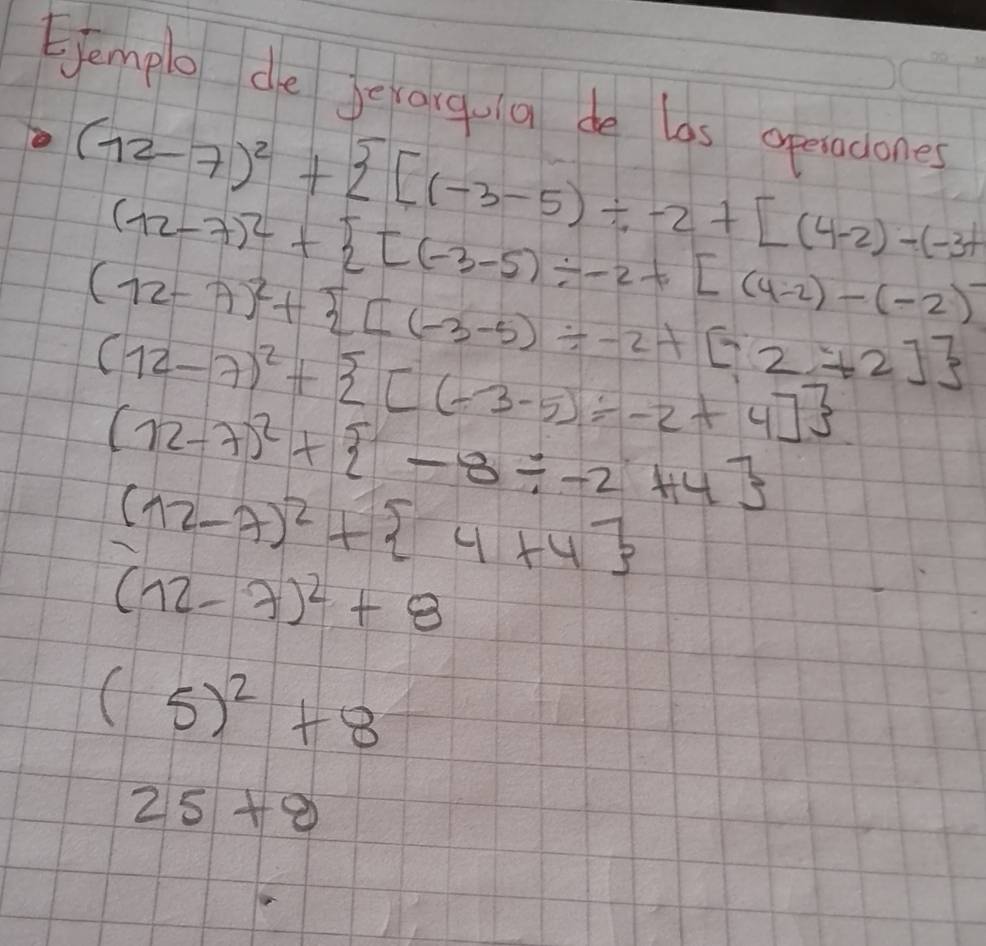 Ejemplo de jerarquia de las operaciones
(12-7)² + {[(-3-5) ÷ -2 + [(4-2) - (-3+
(12-7)² + {[(-3-5) ÷ -2 + [(4-2) - (-2)
(12-7)² + {[(-3-5) ÷ -2 + [2 + 2]}
(12-7)² + {[(-3-5) ÷ -2 + 4]}
(12-7)² + { -8 ÷ -2 + 4}
(12-7)² + { 4 + 4}
(12-7)² + 8
( 5)² + 8
25 + 8